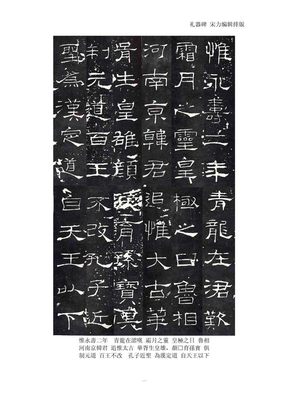 礼器碑 宋力编辑排版
惟永壽二年青龍在涒歎
霜月之靈皇極之日魯相
河南京韓君追惟大古華
胥生皇雄顏育孔寶俱
制元道百王不改孔子近
聖為漢定道自天王以下
惟永壽二年 青龍在涒嘆 霜月之靈 皇極之日 魯相
河南京韓君 追惟太古 華胥生皇雄，顏□育孫寶 俱
制元道 百王不改 孔子近聖 為漢定道 自天王以下